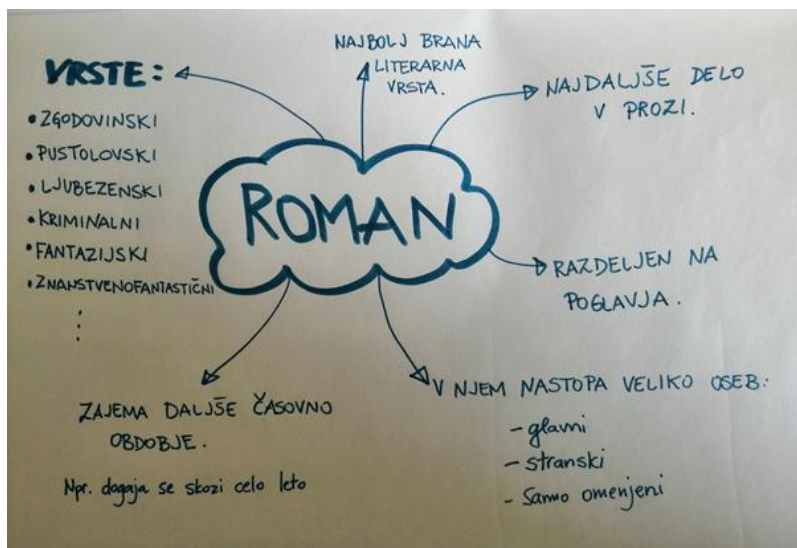 ROMAN
VRSTE:
• ZGODOVINSKI
• PUSTOLOVSKI
• LJUBEZENSKI
• KRIMINALNI
• FANTAZIJSKI
• ZNANSTVENOFANTASTIČNI
⋮
NAJBOLJ BRANA
LITERARNA
VRSTA.
NAJDALJŠE DELO
V PROZI.
RAZDELJEN NA
POGLAVJA.
V NJEM NASTOPA VELIKO OSEB:
- glavni
- stranski
- Samo omenjeni
ZAJEMA DALJŠE ČASOVNO
OBDOBJE.
Npr. dogaja se skozi celo leto